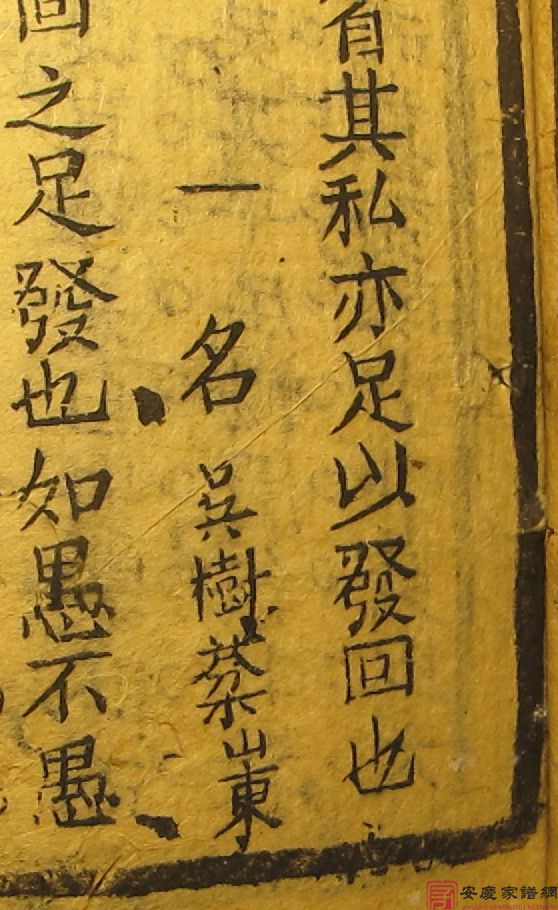 省其私亦足以發回也
一名 吳樹棻山東
回之足發也如愚不愚
安慶家譜網